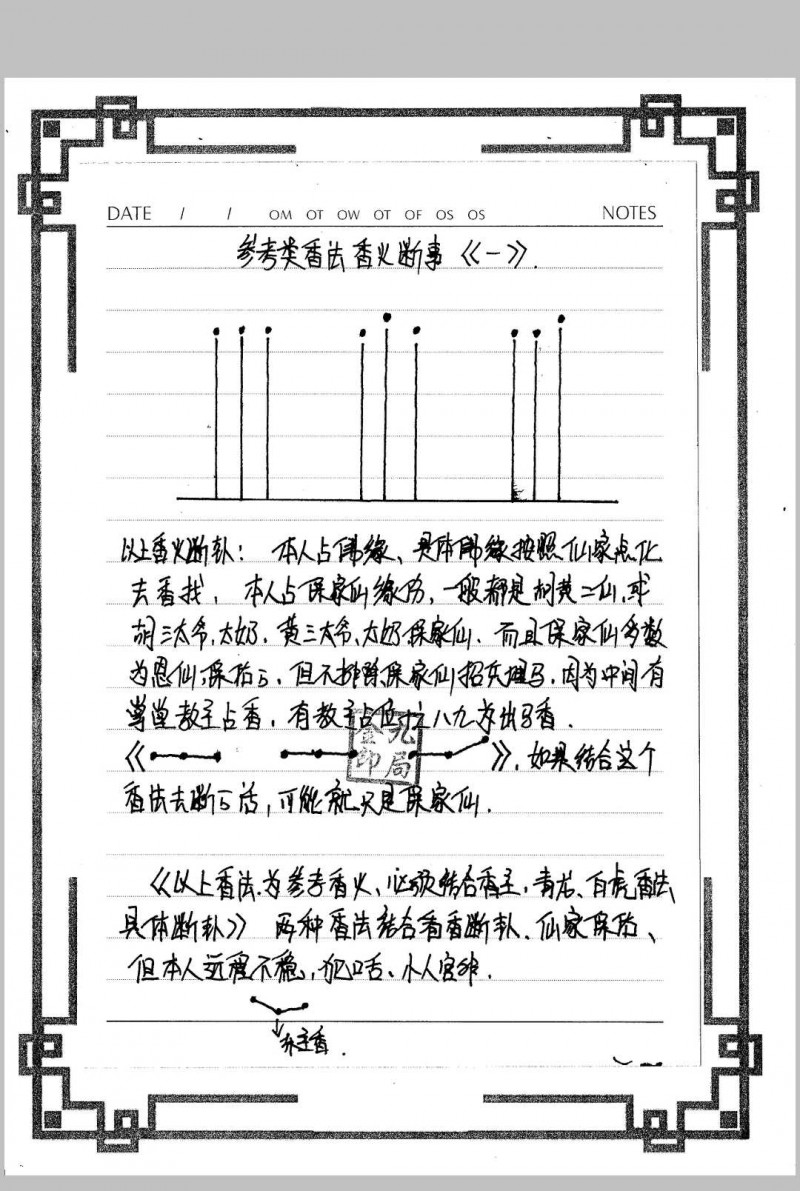 DATE / / OM OT OW OT OF OS OS NOTES
参考类香法香火断事《一》.
以上香火断卦： 本人占佛缘、具体佛缘按照仙家点化
去查找， 本人占保家仙缘份，一般都是胡黄二仙，或
胡三太爷，太奶，黄三太爷，太奶保家仙. 而且保家仙多数
为恩仙，保胎的，但不排除保家仙招兵埋马，因为中间有
掌堂教主占香，有教主占位十之八九亦出马香.
《 》，如果结合这个
金九
印局
香法去断的话，可能就只是保家仙.
《以上香法为参考香火、必须结合香主，青龙、白虎香法
具体断卦》 两种香法结合看香断卦、仙家保胎、
但本人运程不稳，犯口舌、小人官非.
教主香.